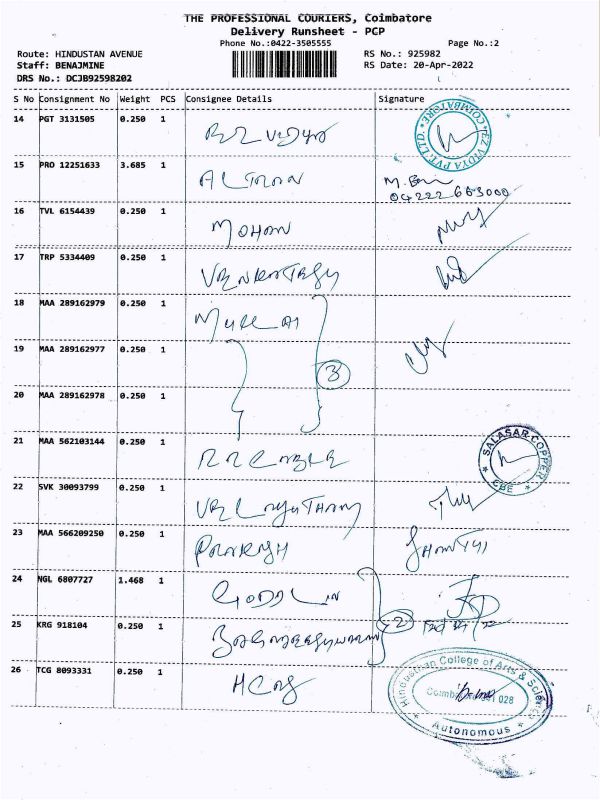 THE PROFESSIONAL COURIERS, Coimbatore
Delivery Runsheet - PCP
Phone No.:0422-3505555 Page No.:2
Route: HINDUSTAN AVENUE RS No.: 925982
Staff: BENAJMINE RS Date: 20-Apr-2022
DRS No.: DCJB92598202
S No Consignment No Weight PCS Consignee Details Signature
14 PGT 3131505 0.250 1
COIMBATORE * EZ VIDYA PVT. LTD. *
15 PRO 12251633 3.685 1
04222 663000
16 TVL 6154439 0.250 1 MOHAN
17 TRP 5334409 0.250 1 VENKATESH
18 MAA 289162979 0.250 1
19 MAA 289162977 0.250 1
3
20 MAA 289162978 0.250 1
21 MAA 562103144 0.250 1
* SALASAR COPPER * CBE
22 SVK 30093799 0.250 1
23 MAA 566209250 0.250 1 PRAKASH
24 NGL 6807727 1.468 1
25 KRG 918104 0.250 1
2
26 TCG 8093331 0.250 1
Hindusthan College of Arts & Science
Coimbatore 641 028
* Autonomous *